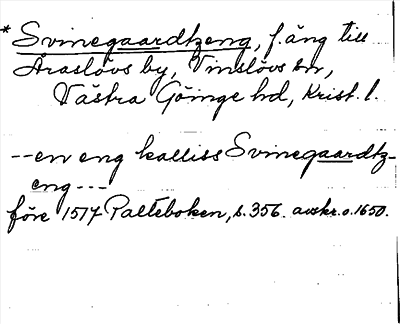 * Svinegaardtzeng, f. äng till
Araslövs by, Vinslövs sn,
Västra Göinge hd, Krist. l.
-- en eng kalliss Svinegaardtz-
eng ---
före 1517 Palteboken, s. 356. avskr. o. 1650.